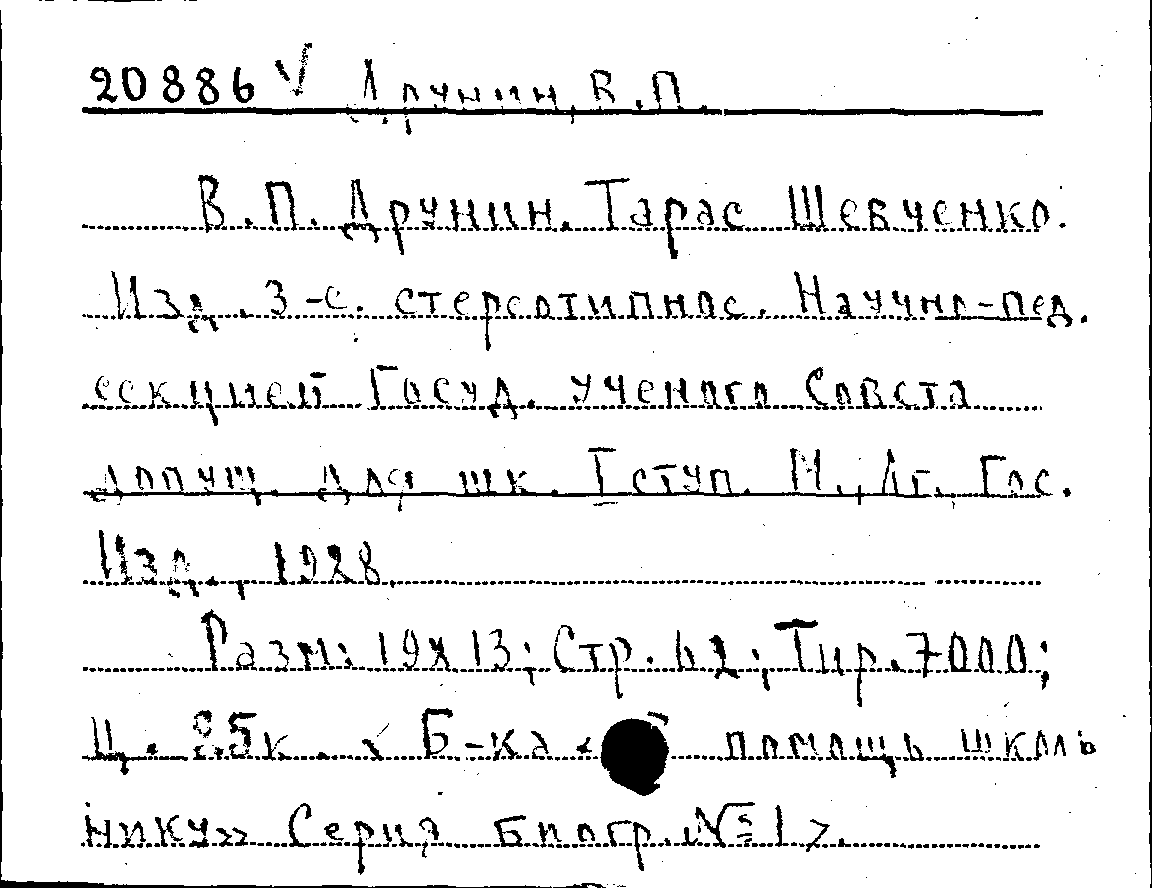 20886 V Друнин, В.П.
В.П. Друнин. Тарас Шевченко.
Изд. 3-е. стереотипное. Научно-пед.
секцией Госуд. ученого Совета
допущ. для шк. I ступ. М., Лг., Гос.
Изд., 1928.
Разм: 19х13; Стр. 62; Тир. 7000;
Ц. 25к. < Б-ка « помощь школь
нику» Серия биогр. № 1 >.